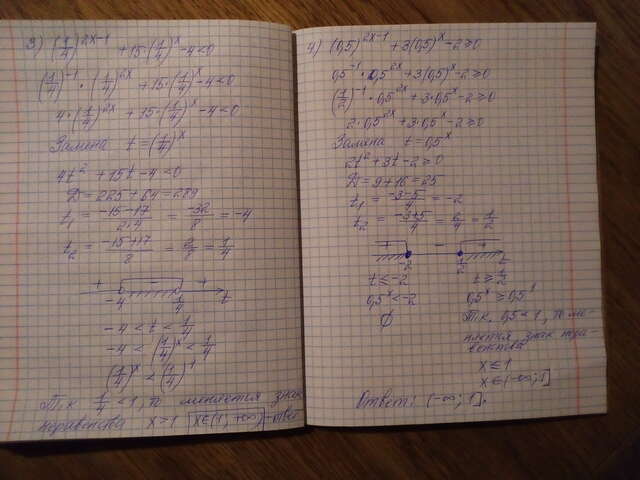 3) (1/4)^(2x-1) + 15·(1/4)^x - 4 < 0
(1/4)^(-1) · (1/4)^(2x) + 15·(1/4)^x - 4 < 0
4·(1/4)^(2x) + 15·(1/4)^x - 4 < 0
Замена t = (1/4)^x
4t² + 15t - 4 < 0
D = 225 + 64 = 289
t₁ = (-15-17)/(2·4) = -32/8 = -4
t₂ = (-15+17)/8 = 2/8 = 1/4
+ - +
-4 1/4 t
-4 < t < 1/4
-4 < (1/4)^x < 1/4
(1/4)^x < (1/4)^1
Т.к 1/4 < 1, то меняется знак
неравенства x > 1 x∈(1; +∞) - ответ
4) (0,5)^(2x-1) + 3(0,5)^x - 2 ≥ 0
0,5^(-1) · 0,5^(2x) + 3(0,5)^x - 2 ≥ 0
(1/2)^(-1) · 0,5^(2x) + 3·0,5^x - 2 ≥ 0
2·0,5^(2x) + 3·0,5^x - 2 ≥ 0
Замена t = 0,5^x
2t² + 3t - 2 ≥ 0
D = 9 + 16 = 25
t₁ = (-3-5)/4 = -2
t₂ = (-3+5)/4 = 2/4 = 1/2
+ - +
-2 1/2 t
t ≤ -2 t ≥ 1/2
0,5^x < -2 0,5^x ≥ 0,5^1
∅ Т.к. 0,5 < 1, то ме-
няется знак нера-
венства
x ≤ 1
x∈(-∞; 1]
Ответ: (-∞; 1].